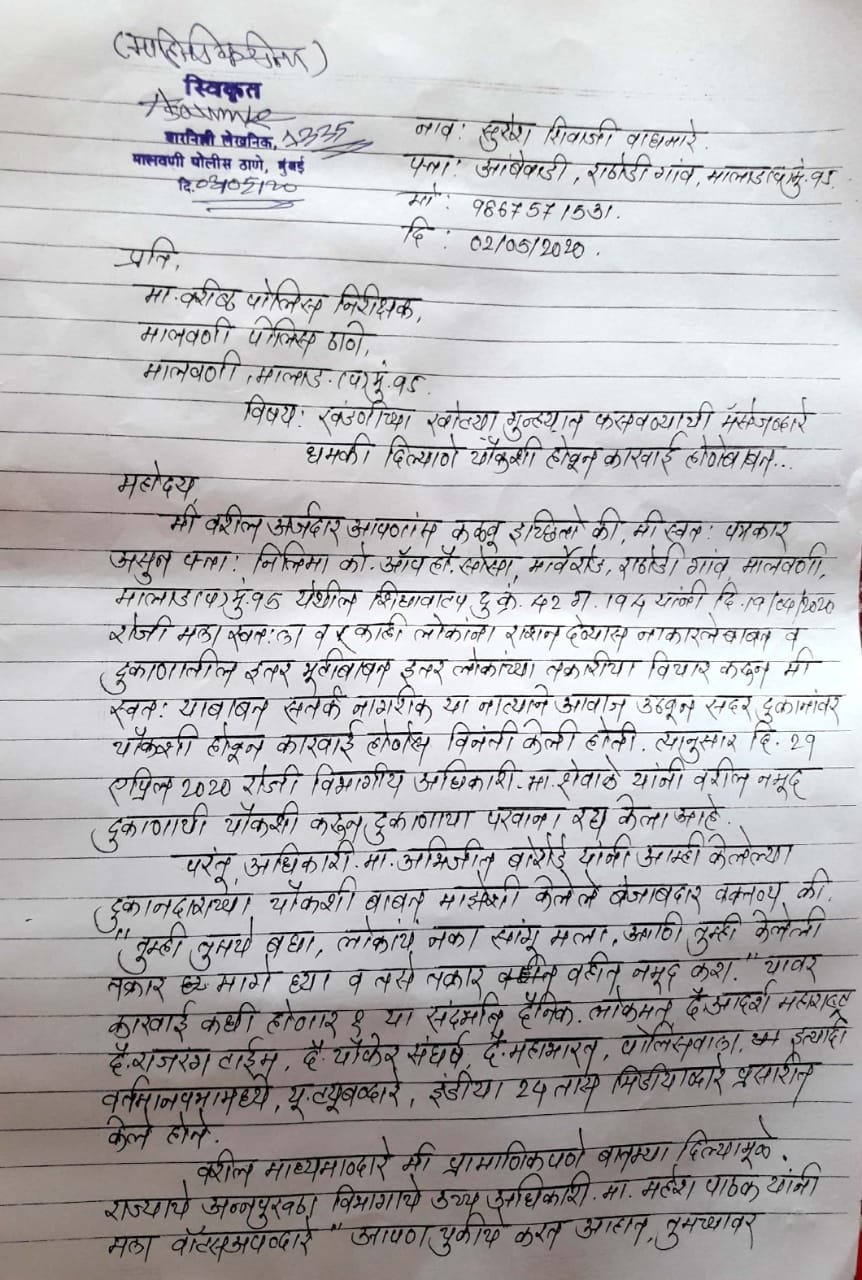 स्विकृत
बारनिशी लेखनिक,
मालवणी पोलीस ठाणे, मुंबई
नाव: सुरेश शिवाजी वाघमारे.
पत्ता: आंबेवाडी, राठोडी गांव, मालाड(प)मुं.९५.
मो: 9867571531.
दि: 02/05/2020.
प्रति,
मा. वरीष्ठ पोलिस निरीक्षक,
मालवणी पोलिस ठाणे,
मालवणी, मालाड.(प)मुं.९५.
विषय: खंडणीच्या खोट्या गुन्ह्यात फसवण्याची मॅसेजव्दारे
धमकी दिल्याणे चौकशी होवून कारवाई होणेबाबत...
महोदय,
मी वरील अर्जदार आपणांस कळवू इच्छितो की, मी स्वत: पत्रकार
असुन पत्ता: निलिमा को. ऑप हौ. सोसा, मार्वेरोड, राठोडी गांव, मालवणी,
मालाड(प)मुं.९५ येथील शिधावाटप दु.क्र. 42 ग. 194 यांनी दि. 19/04/2020
रोजी मला स्वत:ला व काही लोकांना राशन देण्यास नाकारलेबाबत व
दुकाणातील इतर त्रूटीबाबत इतर लोकांच्या तक्रारीचा विचार करून मी
स्वत: याबाबत सतर्क नागरीक या नात्याने आवाज उठवून सदर दुकानांवर
चौकशी होवून कारवाई होणेस विनंती केली होती. त्यानुसार दि. 29
एप्रिल 2020 रोजी विभागीय अधिकारी. मा. शेवाळे यांनी वरील नमूद
दुकाणाची चौकशी करून दुकाणाचा परवाना रद्द केला आहे.
परंतू, अधिकारी. मा. अभिजीत बोरोडे यांनी आम्ही केलेल्या
दुकानदाराच्या चौकशी बाबत माझेशी केलेले बेजाबदार वक्तव्य की,
"तुम्ही तुमचे बघा, लोकांचे नका सांगू मला, आणि तुम्ही केलेली
तक्रार मागे घ्या व तसे तक्रार वहीत नमूद करा." यावर
कारवाई कधी होणार? या संदर्भात दैनिक. लोकमत, दै. आदर्श महाराष्ट्र,
दै. राजरंग टाईम, दै. चौफेर संघर्ष, दै. महाभारत, पोलिसवाला, इत्यादी
वर्तमानपत्रामध्ये, यू.ट्यूबव्दारे, इंडीया 24 तास मिडीयाव्दारे प्रसारीत
केले होते.
वरील माध्यमाव्दारे मी प्रामाणिकपणे बातम्या दिल्यामूळे.
राज्याचे अन्नपुरवठा विभागाचे उच्च अधिकारी. मा. महेश पाठक यांनी
मला वॉटसअपव्दारे "आपण चुकीचे करत आहात, तुमच्यावर